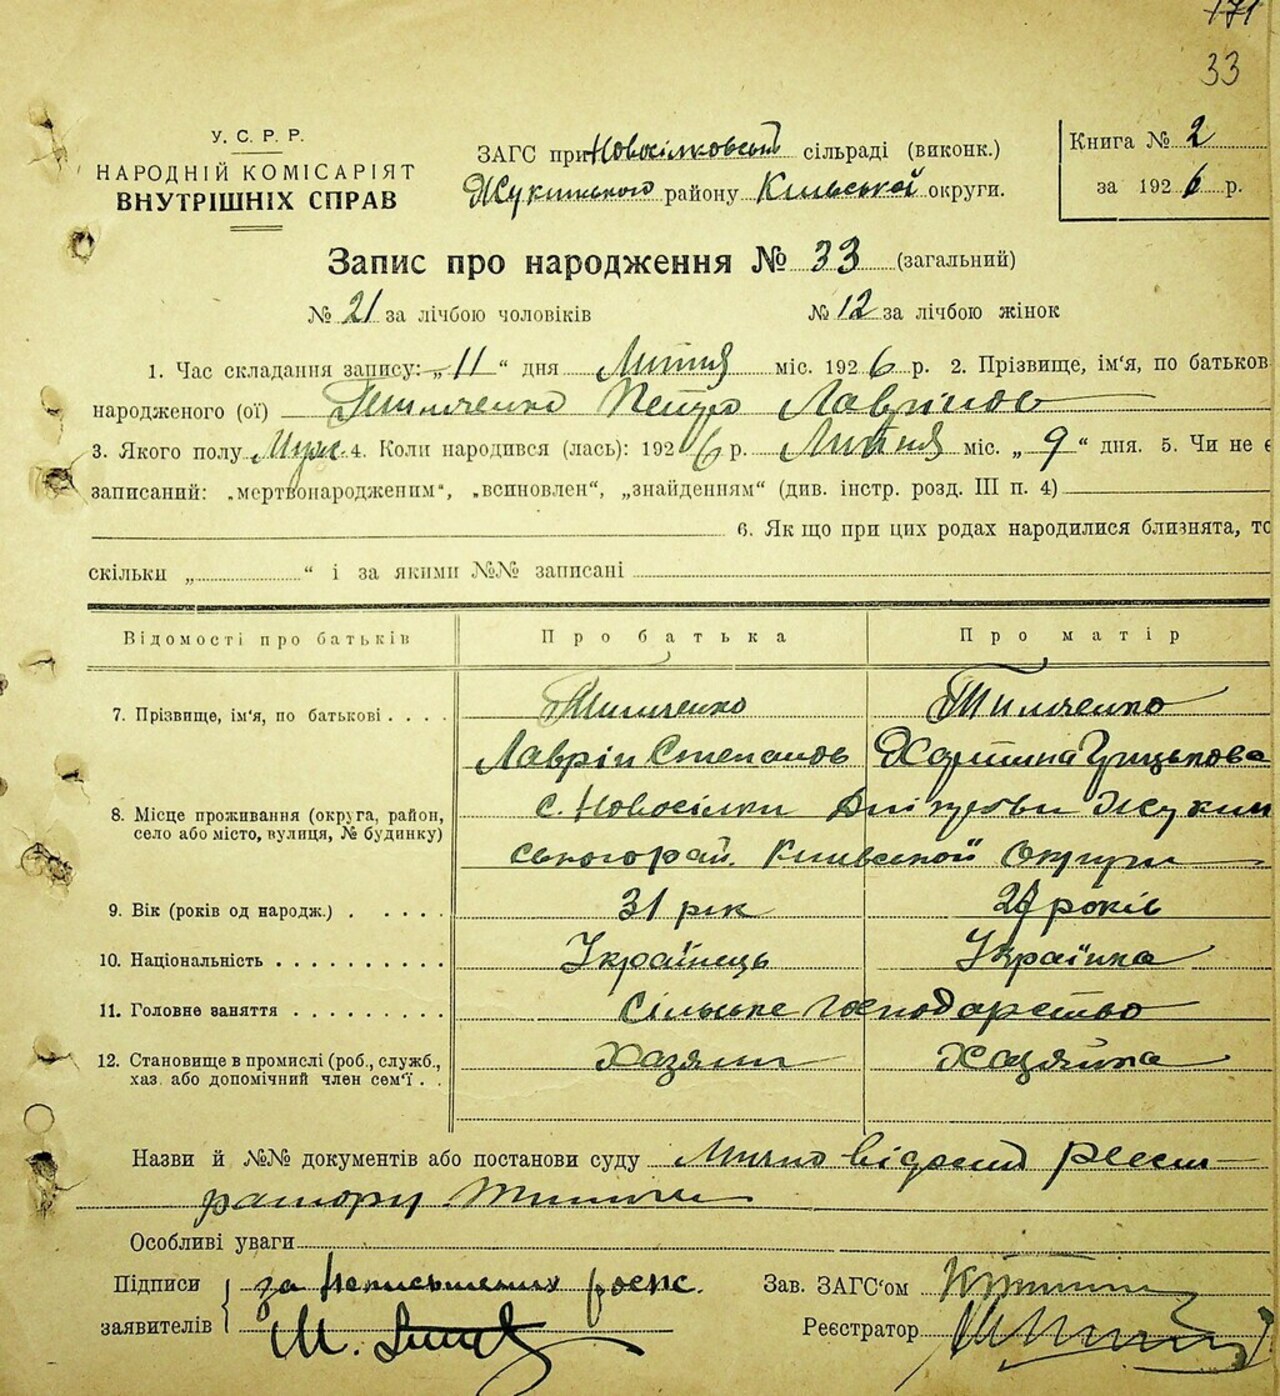 171
33
У. С. Р. Р.
НАРОДНІЙ КОМІСАРІЯТ
ВНУТРІШНІХ СПРАВ
ЗАГС при Новосілковській сільраді (виконк.)
Жукинського району Київської округи.
Книга № 2
за 1926 р.
Запис про народження № 33 (загальний)
№ 21 за лічбою чоловіків № 12 за лічбою жінок
1. Час складання запису: „ 11 “ дня Липня міс. 1926 р. 2. Прізвище, ім‘я, по батьков
народженого (ої) Тимченко Петро Лаврінов
3. Якого полу Муж. 4. Коли народився (лась): 1926 р. Липня міс. „ 9 “ дня. 5. Чи не є
записаний: „мертвонародженим“, „всиновлен“, „знайденням“ (див. інстр. розд. III п. 4)
6. Як що при цих родах народилися близнята, то
скільки „ “ і за якими №№ записані
Відомості про батьків Про батька Про матір
7. Прізвище, ім'я, по батькові . . . . Тимченко Тимченко
Лаврін Степанов Харитина Грицькова
8. Місце проживання (округа, район, село або місто, вулиця, № будинку) с. Новосілки Жукин
ського рай. Київської Округи
9. Вік (років од народж.) . . . . . 31 рік років
10. Національність . . . . . . . . . . Українець Українка
11. Головне заняття . . . . . . . . . Сільське господарство
12. Становище в промислі (роб., служб., хаз. або допомічний член сем‘ї . . Хазяин Хазяйка
Назви й №№ документів або постанови суду відомий реєст-
ратору
Особливі уваги
Підписи за неписьменних роспс.
заявителів М.
Зав. ЗАГС‘ом
Реєстратор